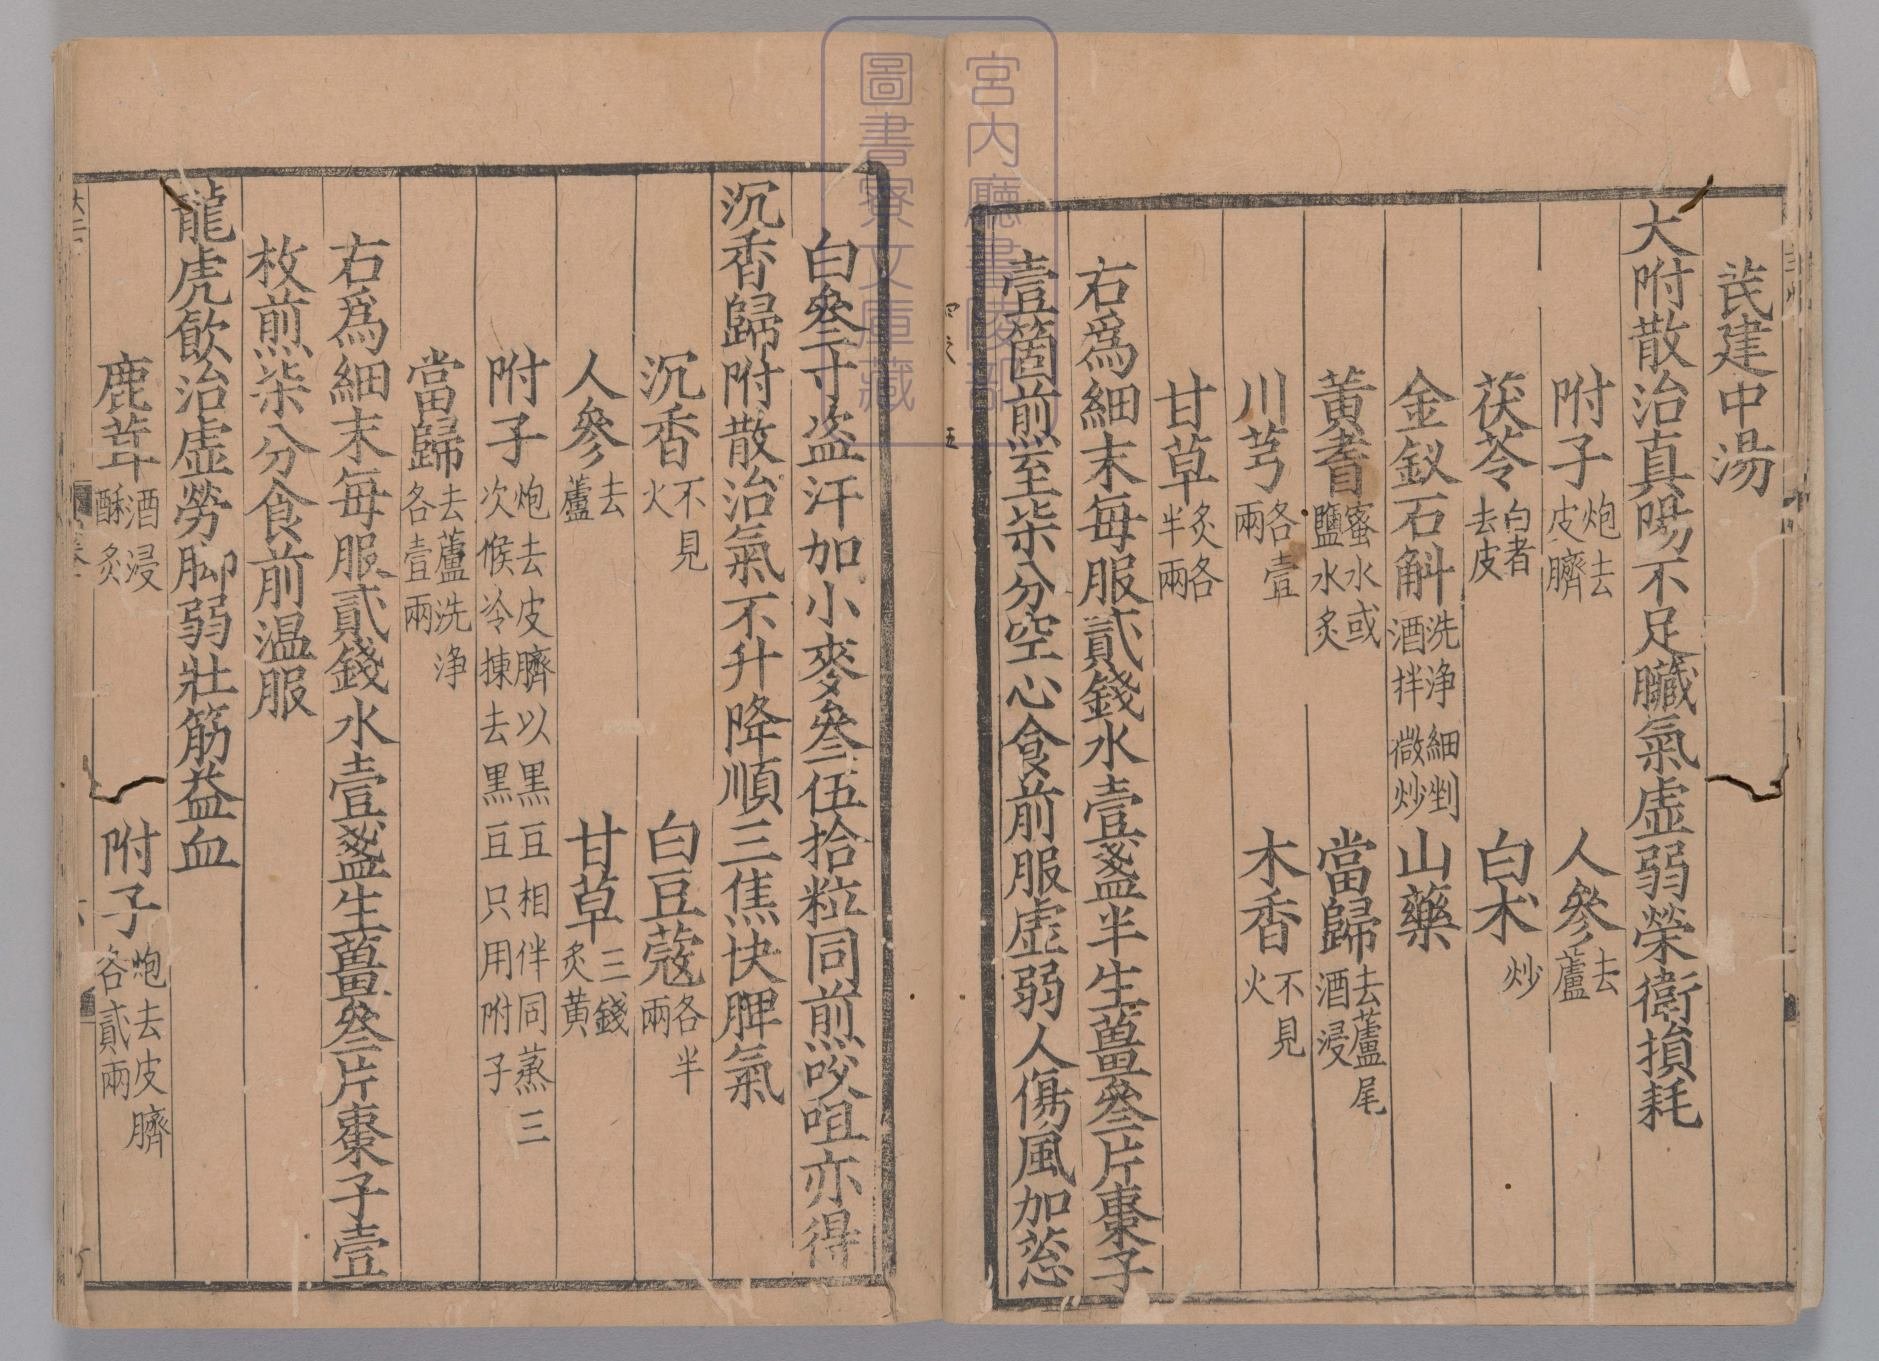 芪建中湯
大附散治真陽不足臟氣虛弱榮衛損耗
附子炮去皮臍 人參去蘆
茯苓白者去皮 白术炒
金釵石斛洗净細剉酒拌微炒 山藥
黃耆蜜水或鹽水炙 當歸去蘆尾酒浸
川芎各壹兩 木香不見火
甘草炙各半兩
右爲細末每服貳錢水壹盞半生薑叄片棗子
壹箇煎至柒分空心食前服虛弱人傷風加葱
白叄寸盗汗加小麥叄伍拾粒同煎㕮咀亦得
沉香歸附散治氣不升降順三焦快脾氣
沉香不見火 白豆蔻各半兩
人參去蘆 甘草三錢炙黃
附子炮去皮臍以黑豆相伴同蒸三次候冷揀去黑豆只用附子
當歸去蘆洗净各壹兩
右爲細末每服貳錢水壹盞生薑叄片棗子壹
枚煎柒分食前温服
龍虎飲治虛勞脚弱壯筋益血
鹿茸酒浸酥炙 附子炮去皮臍各貳兩
宮内廳書陵部
圖書寮文庫藏